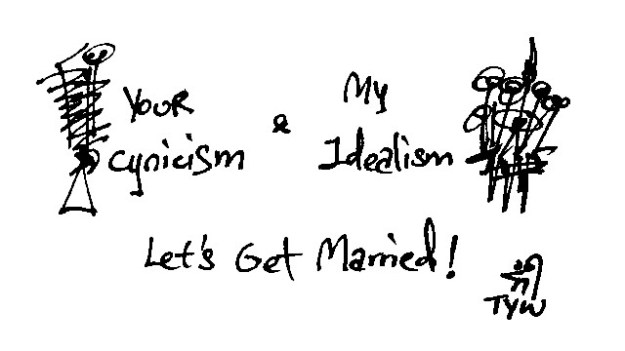 Your & My
Cynicism Idealism
Let's Get Married!
TYW